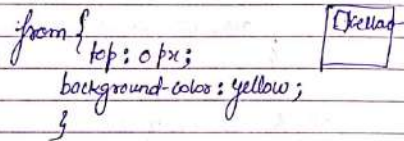 from {
top: 0px;
background-color: yellow;
}